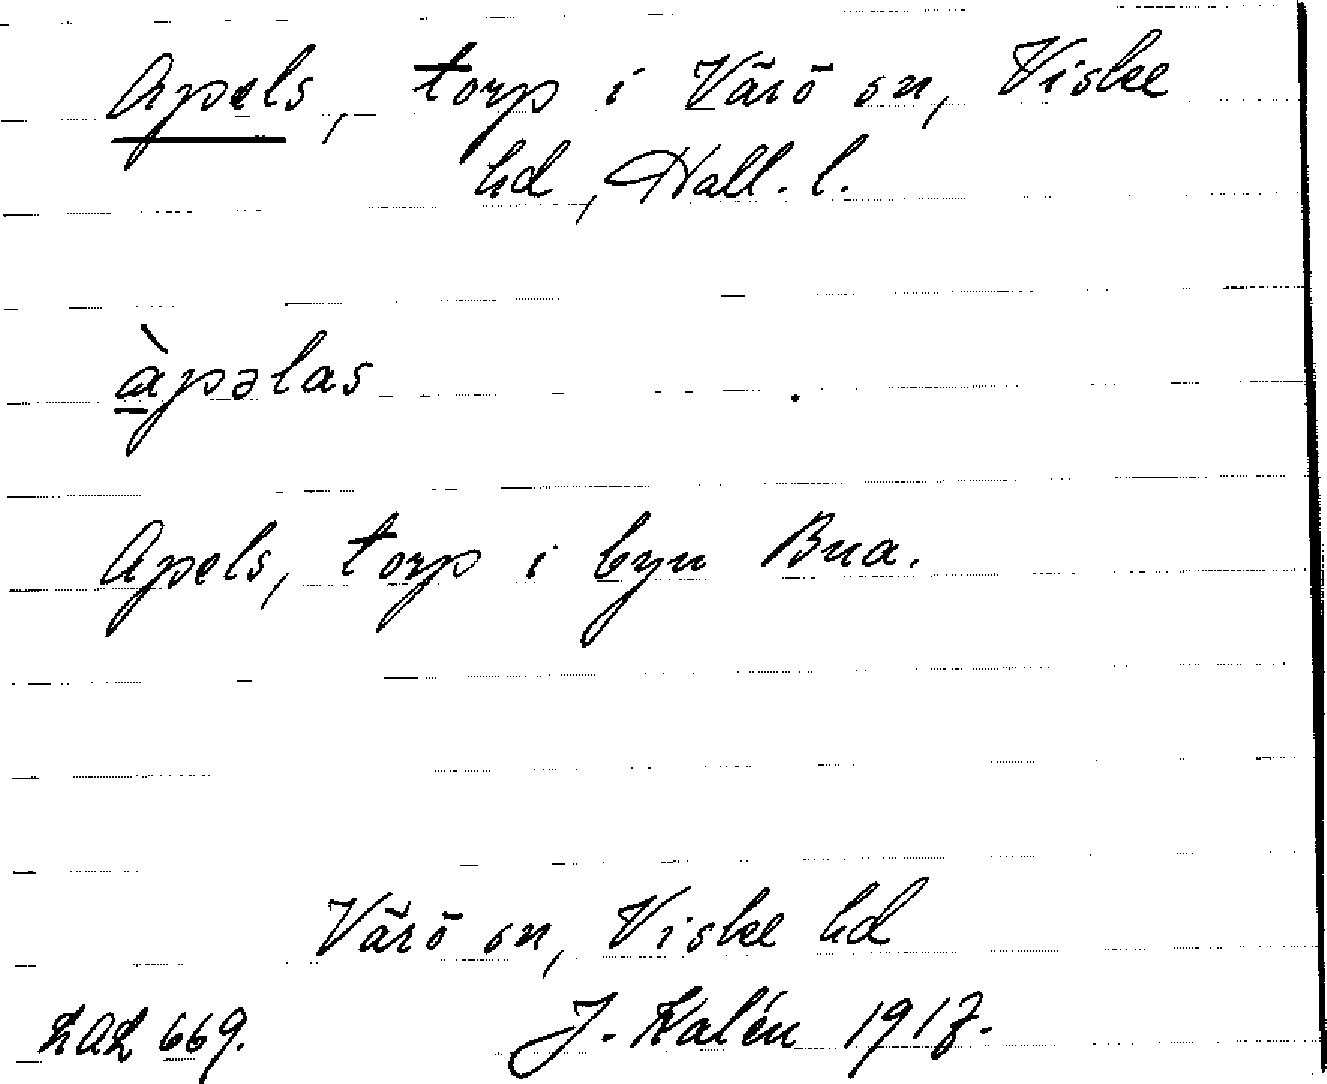 Apels, torp i Värö sn, Viske
hd, Hall. l.
àpəlas
Apels, torp i byn Bua.
Värö sn, Viske hd
LAL 669. J. Kalén 1917.